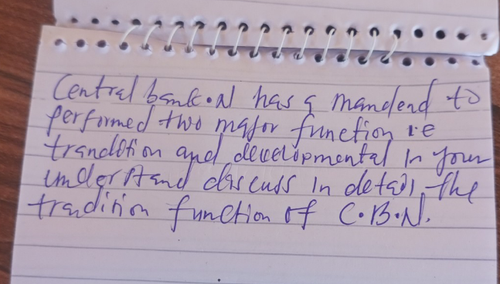 Central bank.N has a mandend to
performed two major function i.e
trandition and developmental In your
understand discuss in details the
trandition function of C.B.N.